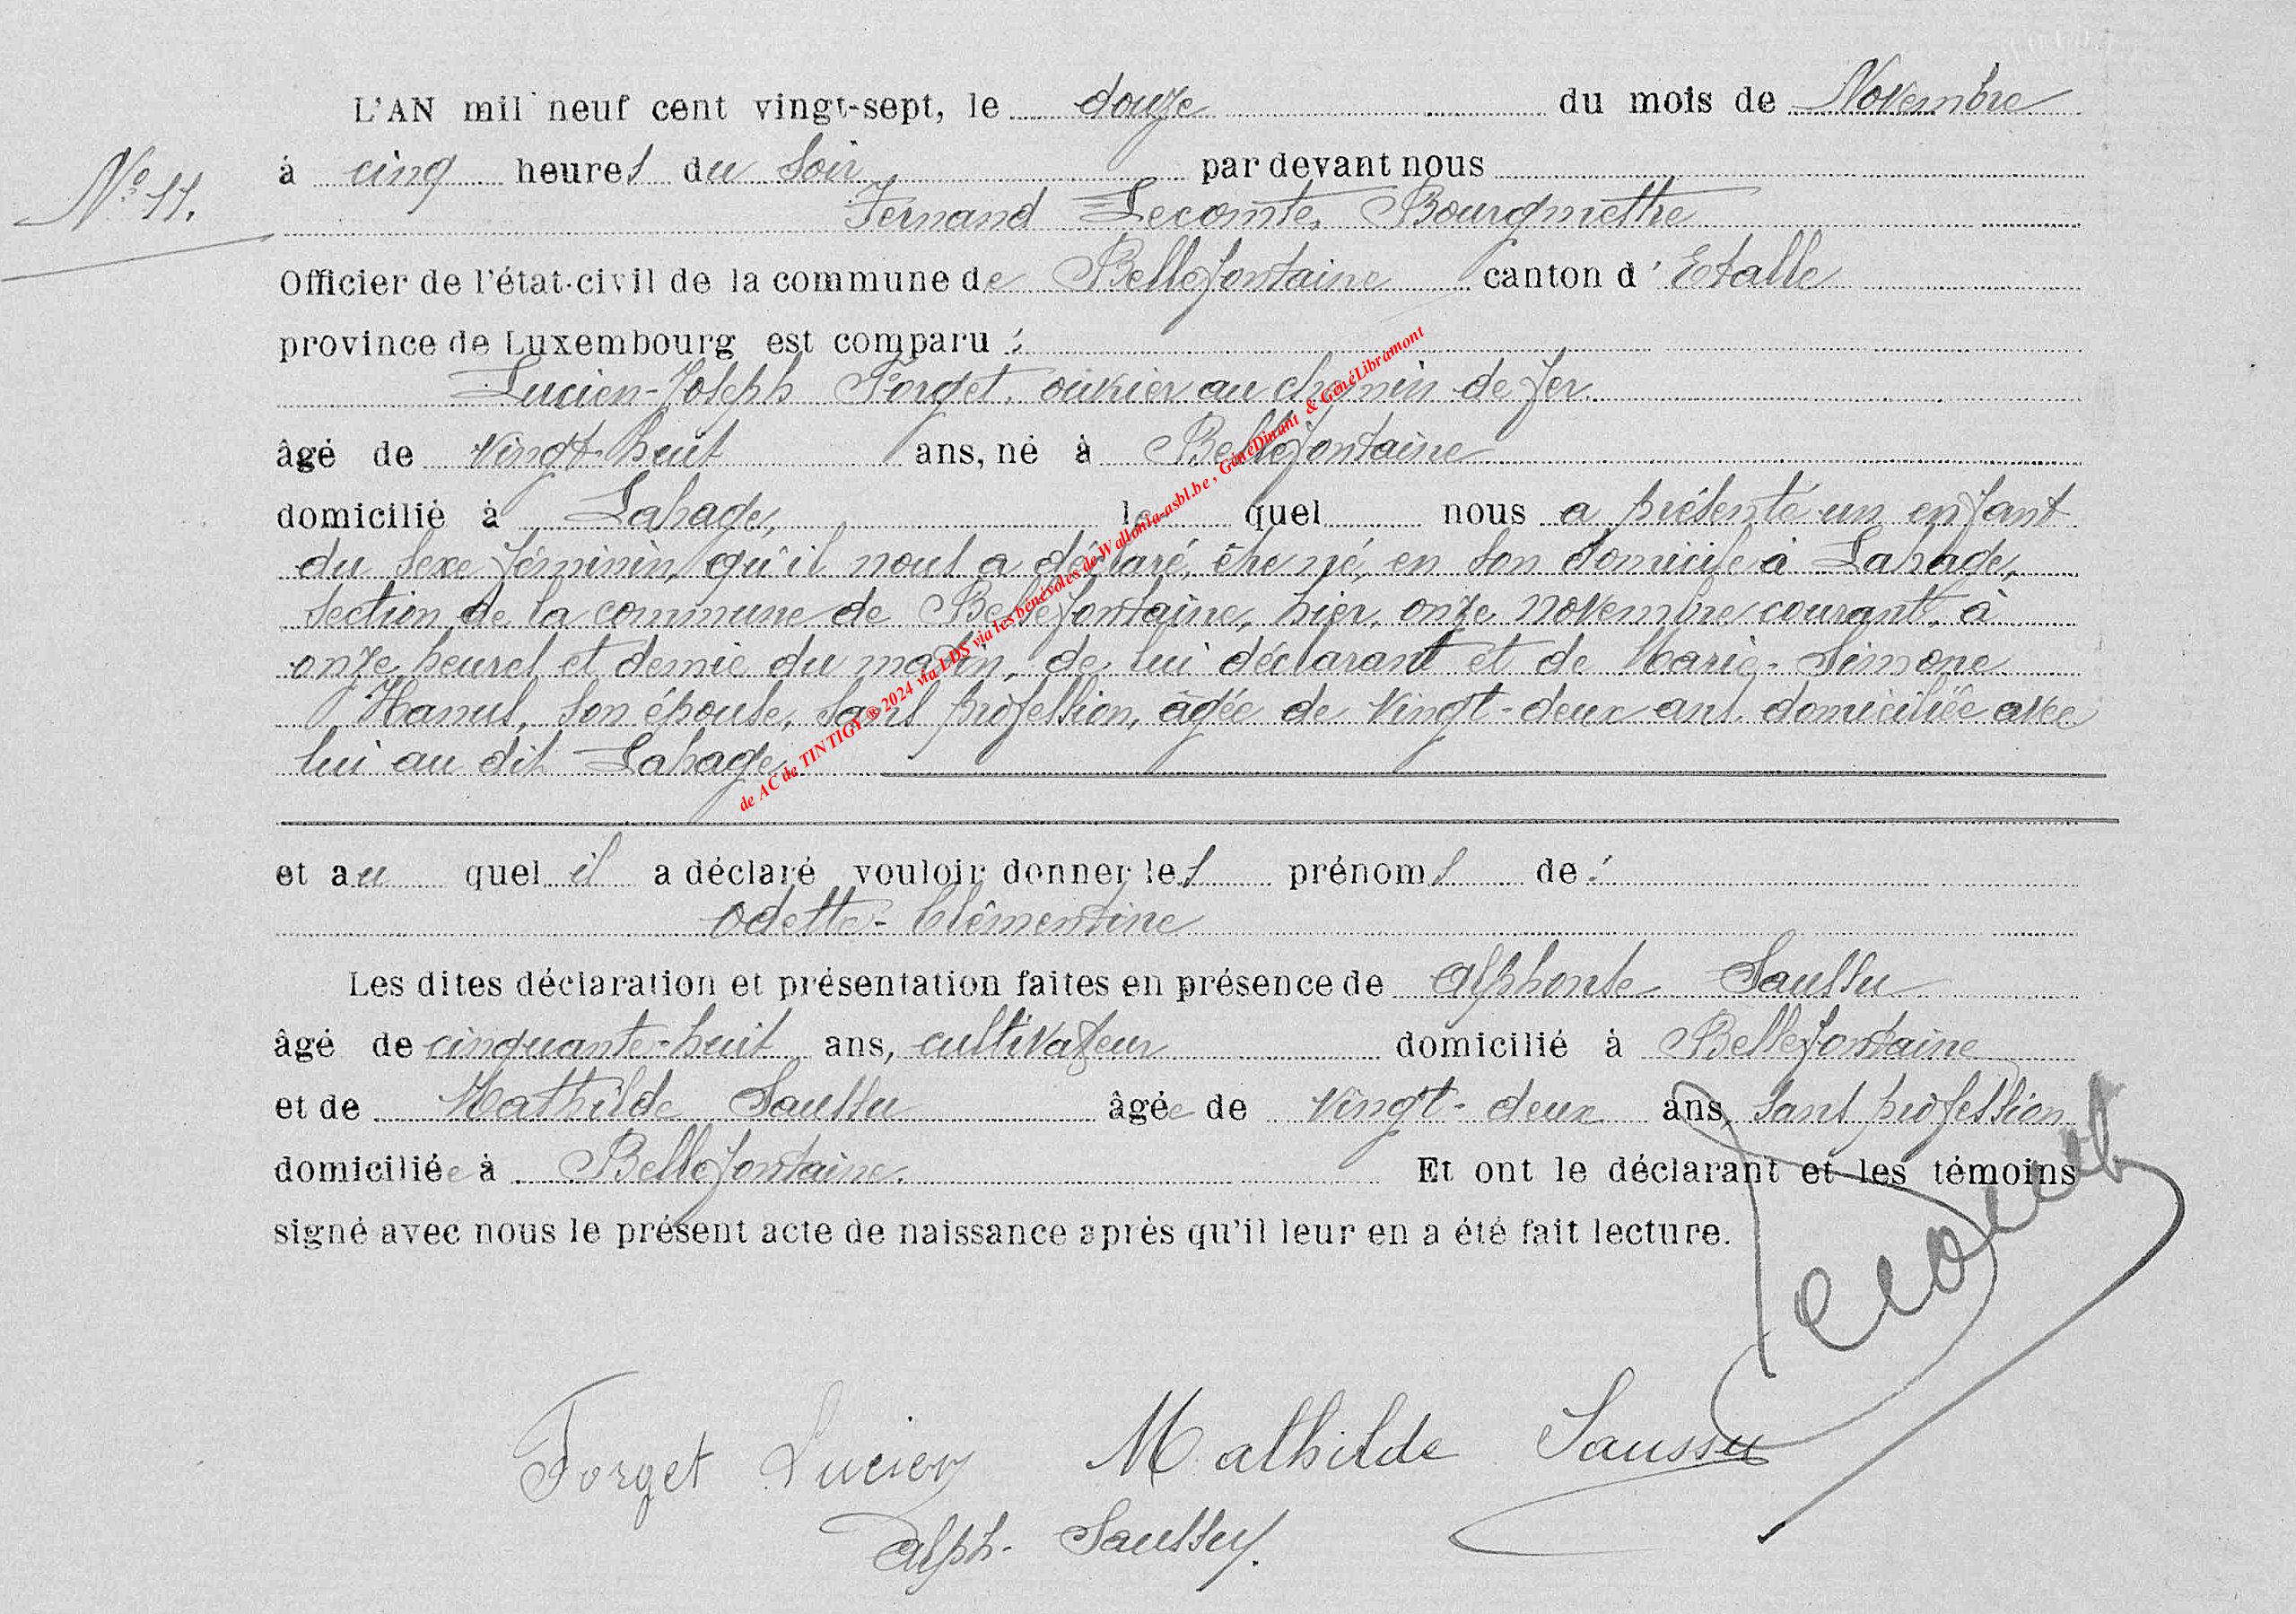 L'AN mil neuf cent vingt-sept, le douze du mois de Novembre
N° 11.
à cinq heures du soir par devant nous
Fernand Lecomte, Bourgmettre
Officier de l'état-civil de la commune de Bellefontaine canton d'Etalle
province de Luxembourg est comparu :
Lucien-Joseph Forget, ouvrier au chemin de fer.
âgé de vingt-huit ans, né à Bellefontaine
domicilié à Lahage, lequel nous a présenté un enfant
du sexe féminin, qu'il nous a déclaré, être né, en son domicile à Lahage,
section de la commune de Bellefontaine, hier, onze novembre courant, à
onze heures et demie du matin, de lui déclarant et de Marie-Simone
Hanus, son épouse, sans profession, âgée de vingt-deux ans domiciliée avec
lui au dit Lahage.
et au quel il a déclaré vouloir donner les prénoms de :
Odette-Clêmentine
Les dites déclaration et présentation faites en présence de Alphonse Saussu
âgé de cinquante-huit ans, cultivateur domicilié à Bellefontaine
et de Mathilde Saussu âgée de vingt-deux ans, sans profession
domiciliée à Bellefontaine. Et ont le déclarant et les témoins
signé avec nous le présent acte de naissance après qu'il leur en a été fait lecture.
Lecomte
Forget Lucien Mathilde Saussu
Alph. Saussu.
de AC de TINTIGY ® 2024 via LDS via les bénévoles de Wallonia-asbl.be, GénéDinant & GénéLibramont